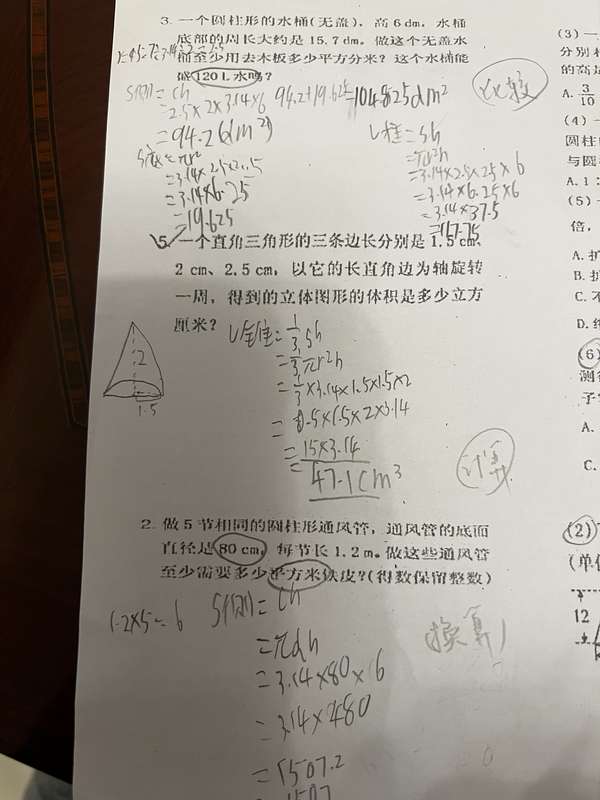 3. 一个圆柱形的水桶(无盖)，高 6 dm，水桶
底部的周长大约是 15.7 dm。做这个无盖水
桶至少用去木板多少平方分米？这个水桶能
盛 120 L 水吗？
S侧=ch
=2.5×2×3.14×6
=94.26(dm²)
94.2+19.625=104.825dm²
比较
S底=πr²
=3.14×2.5×2.5
=3.14×6.25
=19.625
V柱=Sh
=πr²h
=3.14×2.5×2.5×6
=3.14×6.25×6
=3.14×37.5
=117.75
5. 一个直角三角形的三条边长分别是 1.5 cm、
2 cm、2.5 cm，以它的长直角边为轴旋转
一周，得到的立体图形的体积是多少立方
厘米？
2
1.5
V锥=1/3Sh
=1/3πr²h
=1/3×3.14×1.5×1.5×2
=0.5×1.5×2×3.14
=15×3.14
=47.1cm³
计算
2. 做 5 节相同的圆柱形通风管，通风管的底面
直径是 80 cm，每节长 1.2 m。做这些通风管
至少需要多少平方米铁皮？(得数保留整数)
1.2×5=6
S侧=ch
=πdh
=3.14×80×6
=3.14×480
=1507.2
=1507
(换算)
(3)一
分别相
的高是
A. 3/10
(4)一
圆柱
与圆
A. 1:
(5)一
倍，
A. 扩
B. 扩
C. 不
D. 纟
(6)
测得
予
A.
C.
(2)
(单位
12